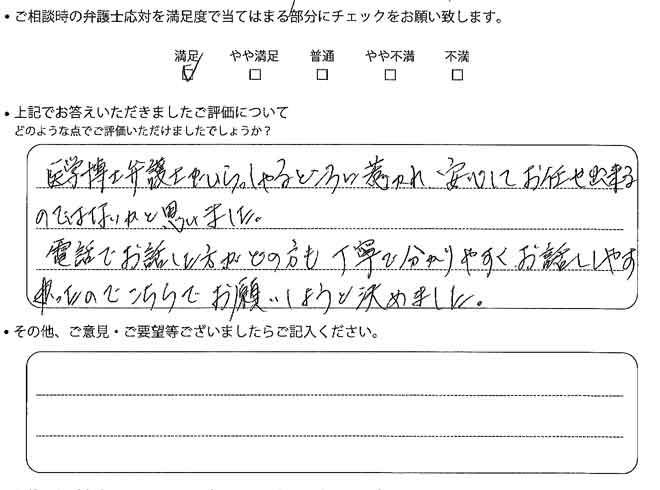 • ご相談時の弁護士応対を満足度で当てはまる部分にチェックをお願い致します。
満足 やや満足 普通 やや不満 不満
• 上記でお答えいただきましたご評価について
どのような点でご評価いただけましたでしょうか？
医学博士弁護士がいらっしゃるところに惹かれ、安心してお任せ出来る
のではないかと思いました。
電話でお話した方がどの方も丁寧で分かりやすくお話ししやす
かったのでこちらでお願いしようと決めました。
• その他、ご意見・ご要望等ございましたらご記入ください。